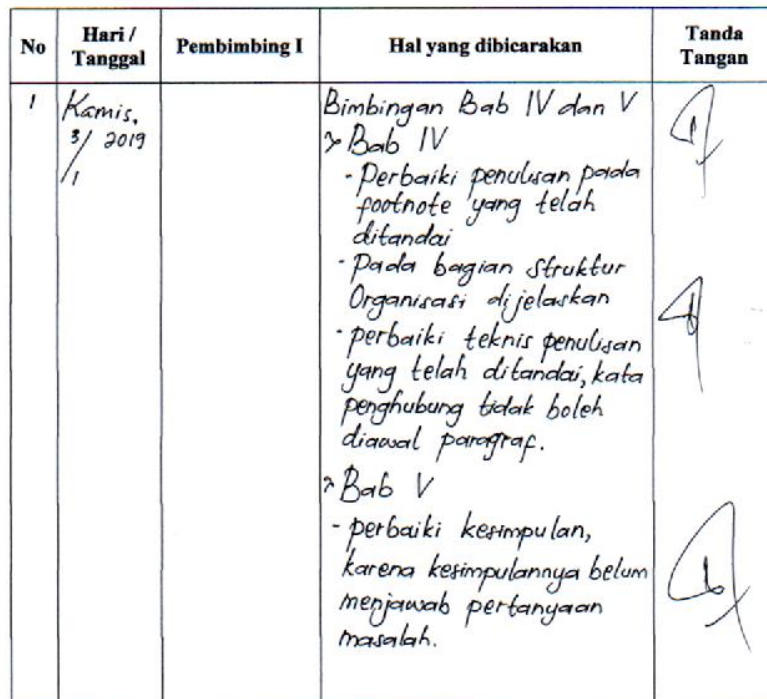 No
Hari /
Tanggal
Pembimbing I
Hal yang dibicarakan
Tanda
Tangan
1
Kamis,
3/ 2019
/1
Bimbingan Bab IV dan V
> Bab IV
- Perbaiki penulisan pada
footnote yang telah
ditandai
- Pada bagian Struktur
Organisasi dijelaskan
- perbaiki teknis penulisan
yang telah ditandai, kata
penghubung tidak boleh
diawal paragraf.
> Bab V
- perbaiki kesimpulan,
karena kesimpulannya belum
menjawab pertanyaan
masalah.